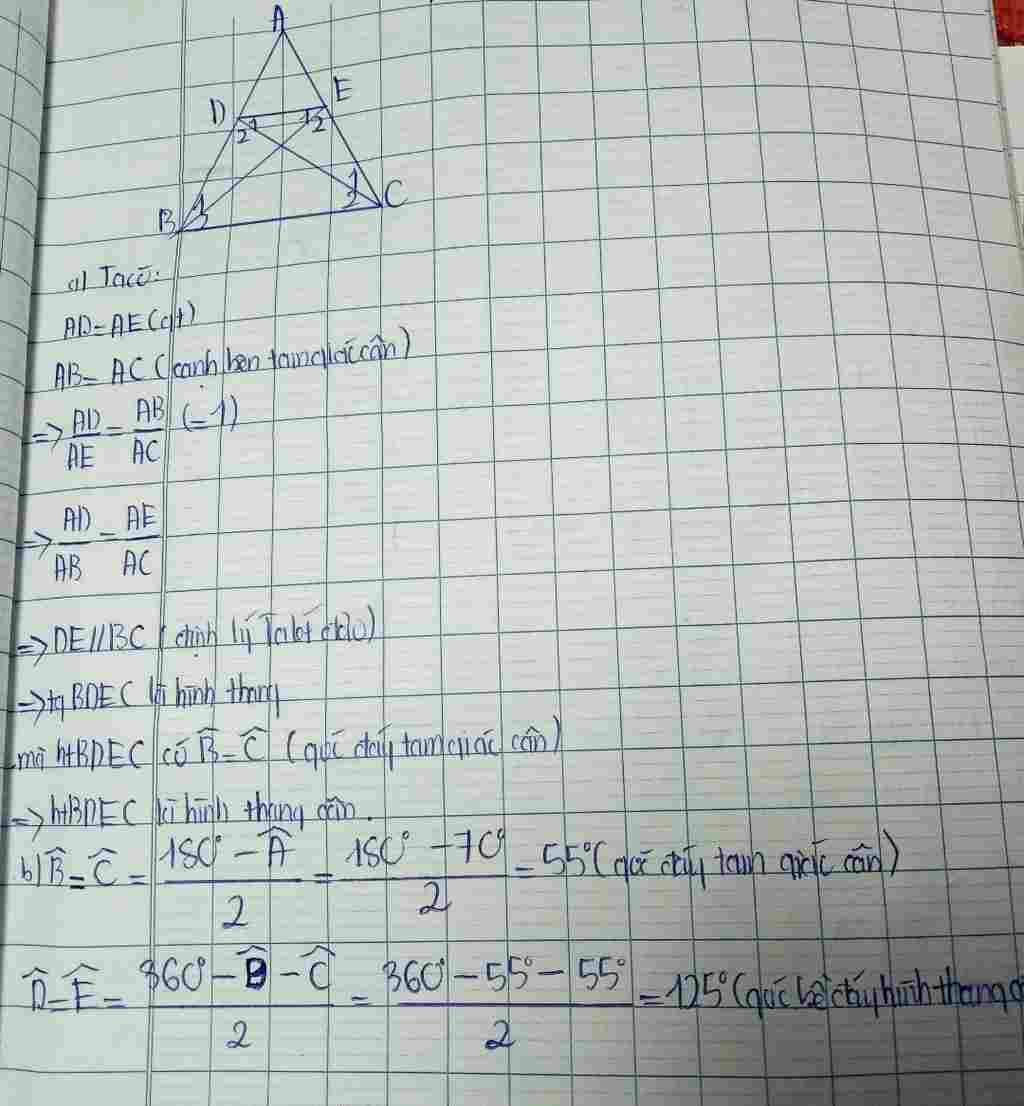 A
D
E
2 1
1 2
1
2
B
1
2
C
a) Ta có:
AD = AE (gt)
AB = AC (cạnh bên tam giác cân)
=> AD/AE = AB/AC (= 1)
=> AD/AB = AE/AC
=> DE//BC (định lý Talet đảo)
=> tg BDEC là hình thang
mà ht BDEC có B̂ = Ĉ (góc đáy tam giác cân)
=> ht BDEC là hình thang cân.
b) B̂ = Ĉ = (180° - Â)/2 = (180° - 70°)/2 = 55° (góc đáy tam giác cân)
D̂ = Ê = (360° - B̂ - Ĉ)/2 = (360° - 55° - 55°)/2 = 125° (góc kề đáy hình thang